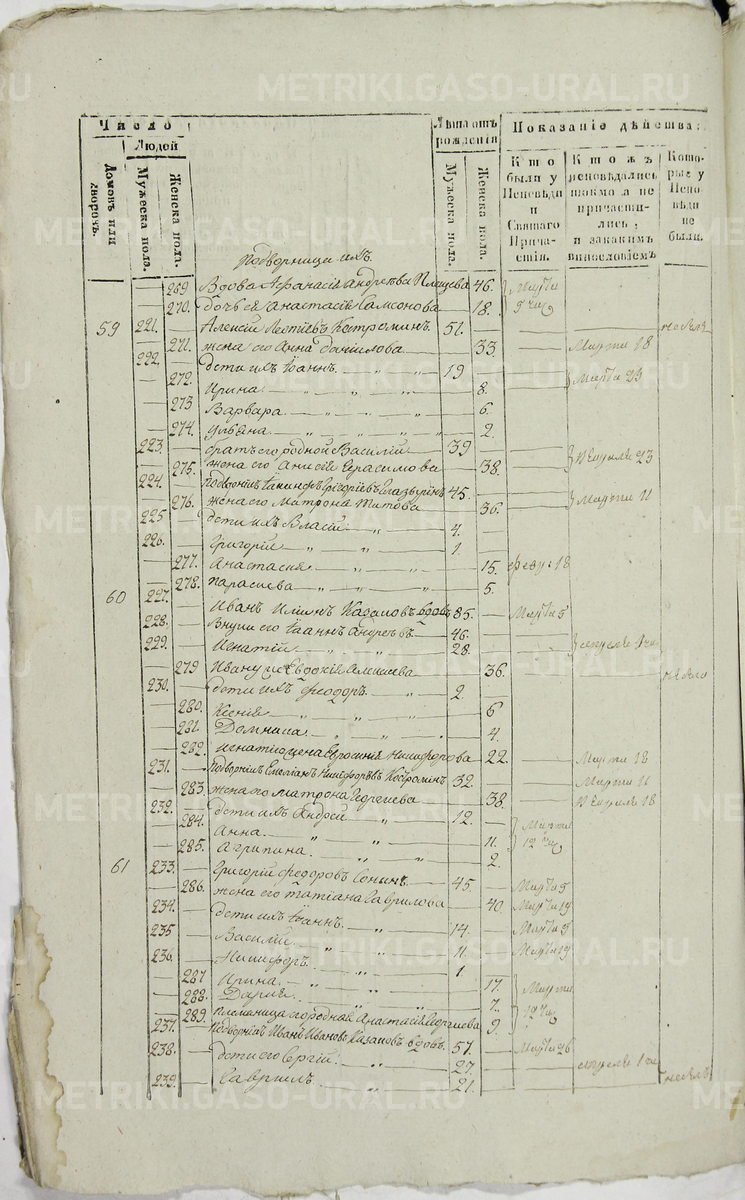 METRIKI.GASO-URAL.RU
Число
Людей
Домовъ или дворовъ.
Мужеска пола.
Женска пола.
Лѣта отъ рожденія
Мужеска пола.
Женска пола.
Показаніе дѣйства:
Кто были у Исповѣди и Святаго Причастія.
Ктожъ исповѣдались токмо а не причастились, и за какимъ винословіемъ
Которые у Исповѣди не были.
Подворница ихъ
269 Вдова Афанасія Андреева 46. Марта
270. дочь ея Анастасія Самсонова 18. 9 чи
59 221. Алексій Леонтіевъ Костроминъ 51.
271. жена его Анна Данилова 33. Марта 18
222. дети ихъ Іоаннъ 19 Марта 23
272. Ирина 8.
273 Варвара 6.
274. Ульяна 2.
223. братъ его родной Василій 39
275. жена его Анисія Герасимова 38. 23
224. Григоріевъ 45.
276. жена его Матрона Титова 36. Марта 11
225 дети ихъ Власій 4.
226. Григорій 1.
277. Анастасія 15. февр: 18
278. Параскева 5.
60 227. Иванъ Казаповъ вдовъ 85. Марта 5
228. Внуки его Іоаннъ Андреевъ 46.
229. Игнатій 28. апреля 1 чи
279 Ивану жена Евдокія 36.
230. дети ихъ Феодоръ 2.
280. Ксенія 6
281. Домника 4.
282. Игнатію жена Евфросинія Никифорова 22. Марта 18
231. Подворникъ Емеліанъ Никифоровъ Костроминъ 32. Марта 11
283. жена его Матрона Георгиева 38. 18
232. дети ихъ Андрей 12. Марта
284. Анна 11. 12 чи
285. Агрипина. 2.
61 233. Григорій Феодоровъ Сонинъ 45. Марта 5
286. жена его Татіана Гаврилова 40. Марта 19
234. дети ихъ Іоаннъ. 14. Марта 5
235 Василій 11. Марта 19
236. Никифоръ 1
287 Ирина 17. Марта
288. Дарія 7. 12 чи
289. Племянница городная Анастасія Георгиева 9.
237. Подворникъ Иванъ Ивановъ Казаповъ вдовъ. 57. Марта 26
238. дети его Сергій 27. апреля 1 чи
239. Гавріилъ 21.